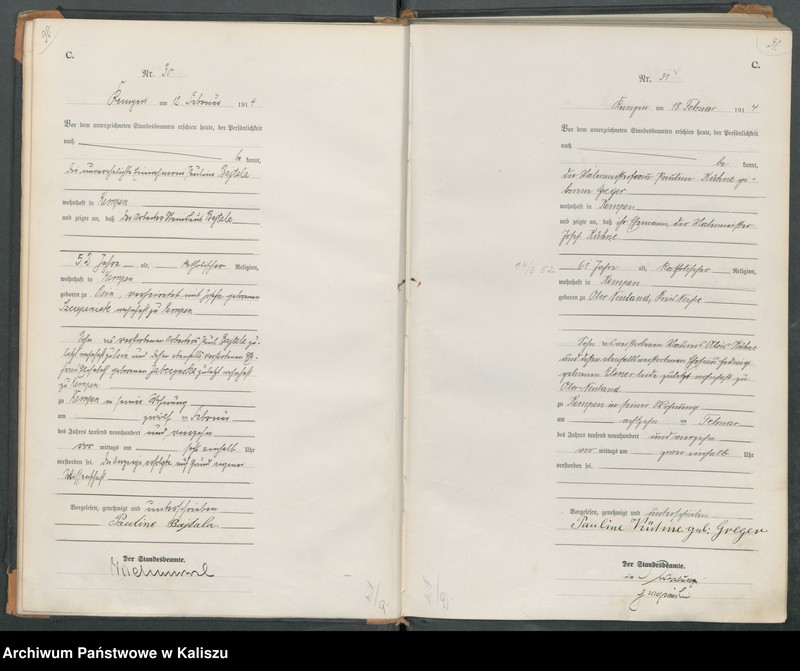 30
C.
Nr. 30
Kempen am 12. Februar 1914
Vor dem unterzeichneten Standesbeamten erschien heute, der Persönlichkeit
nach
be kannt,
die unverehelichte Pauline Bajtala
wohnhaft in Kempen
und zeigte an, daß der Arbeiter Bajtala
52 Jahre alt, katholischer Religion,
wohnhaft in Kempen
geboren zu verheiratet mit geborenen
wohnhaft zu Kempen
Sohn des verstorbenen Arbeiters Paul Bajtala zu-
letzt wohnhaft zu und dessen ebenfalls verstorbenen Ehe-
frau Elisabeth geborenen zuletzt wohnhaft
zu Kempen
zu Kempen in seiner Wohnung
am zwölf ten Februar
des Jahres tausend neunhundert und vierzehn
vor mittags um einhalb Uhr
verstorben sei. Die Anzeige erfolgte auf Grund eigener
Wissenschaft
Vorgelesen, genehmigt und unterschrieben
Pauline Bajtala
Der Standesbeamte.
31
C.
Nr. 31
Kempen am 18. Februar 1914
Vor dem unterzeichneten Standesbeamten erschien heute, der Persönlichkeit
nach
be kannt,
die Pauline Kühne ge-
borene Greger
wohnhaft in Kempen
und zeigte an, daß ihr Ehemann, der
Josef Kühne
61 Jahre alt, katholischer Religion,
wohnhaft in Kempen
geboren zu Ober Neuland, Kreis Neiße
Sohn des verstorbenen Alois Kühne
und dessen ebenfalls verstorbenen Ehefrau Hedwig
geborenen Elsner beide zuletzt wohnhaft zu
Ober-Neuland
zu Kempen in seiner Wohnung
am achtzehn ten Februar
des Jahres tausend neunhundert und vierzehn
vor mittags um zwei einhalb Uhr
verstorben sei.
Vorgelesen, genehmigt und unterschrieben
Pauline Kühne geb. Greger
Der Standesbeamte.
in Vertretung
Archiwum Państwowe w Kaliszu